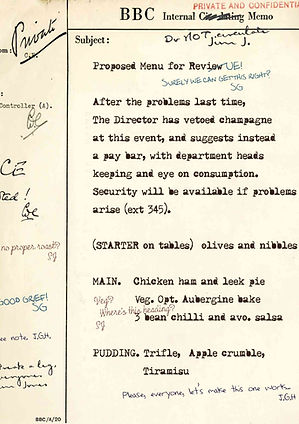 PRIVATE AND CONFIDENTIA
BBC Internal Memo
Private
Subject: Do NOT circulate
Jim J.
Proposed Menu for ReviewUE!
SURELY WE CAN GET THIS RIGHT?
SG
After the problems last time,
The Director has vetoed champagne
at this event, and suggests instead
a pay bar, with department heads
keeping and eye on consumption.
Security will be available if problems
arise (ext 345).
Controller (A).
(STARTER on tables) olives and nibbles
no proper roast?
SJ
MAIN. Chicken ham and leek pie
Veg? Veg. Opt. Aubergine bake
Where's this heading?
SJ
3 bean chilli and avo. salsa
GOOD GRIEF!
SG
see note. J.G.H.
PUDDING. Trifle, Apple crumble,
Tiramisu
Please, everyone, let's make this one work.
J.G.H
BBC/A/20